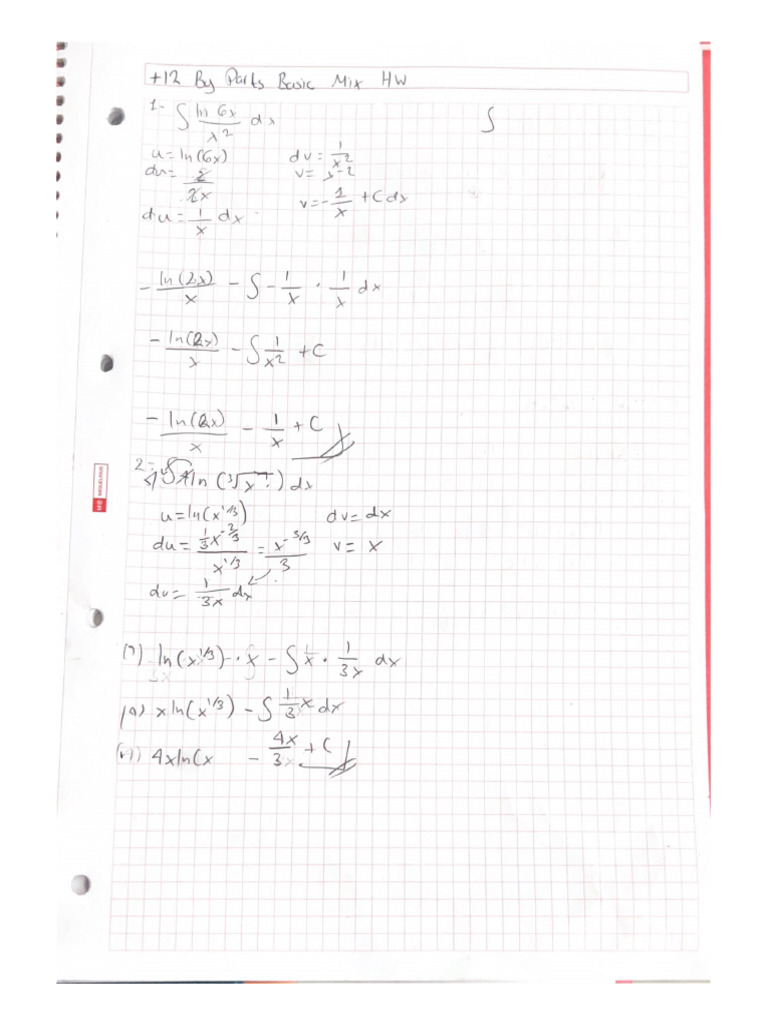 +12 By Parts Basic Mix HW
1- ∫ ln 6x / x² dx ∫
u = ln(6x) dv = 1/x²
du = 2/2x v = x^-2
v = -1/x + C dx
du = 1/x dx
- ln(2x)/x - ∫ - 1/x · 1/x dx
- ln(2x)/x - ∫ 1/x² + C
- ln(2x)/x - 1/x + C
2- ∫ ln(³√x) dx
u = ln(x^1/3) dv = dx
du = 1/3 x^-2/3 / x^1/3 = x^-3/3 / 3 v = x
du = 1/3x dx
ln(x^1/3) · x - ∫ x · 1/3x dx
x ln(x^1/3) - ∫ 1/3 x dx
4x ln(x - 4x/3 + C